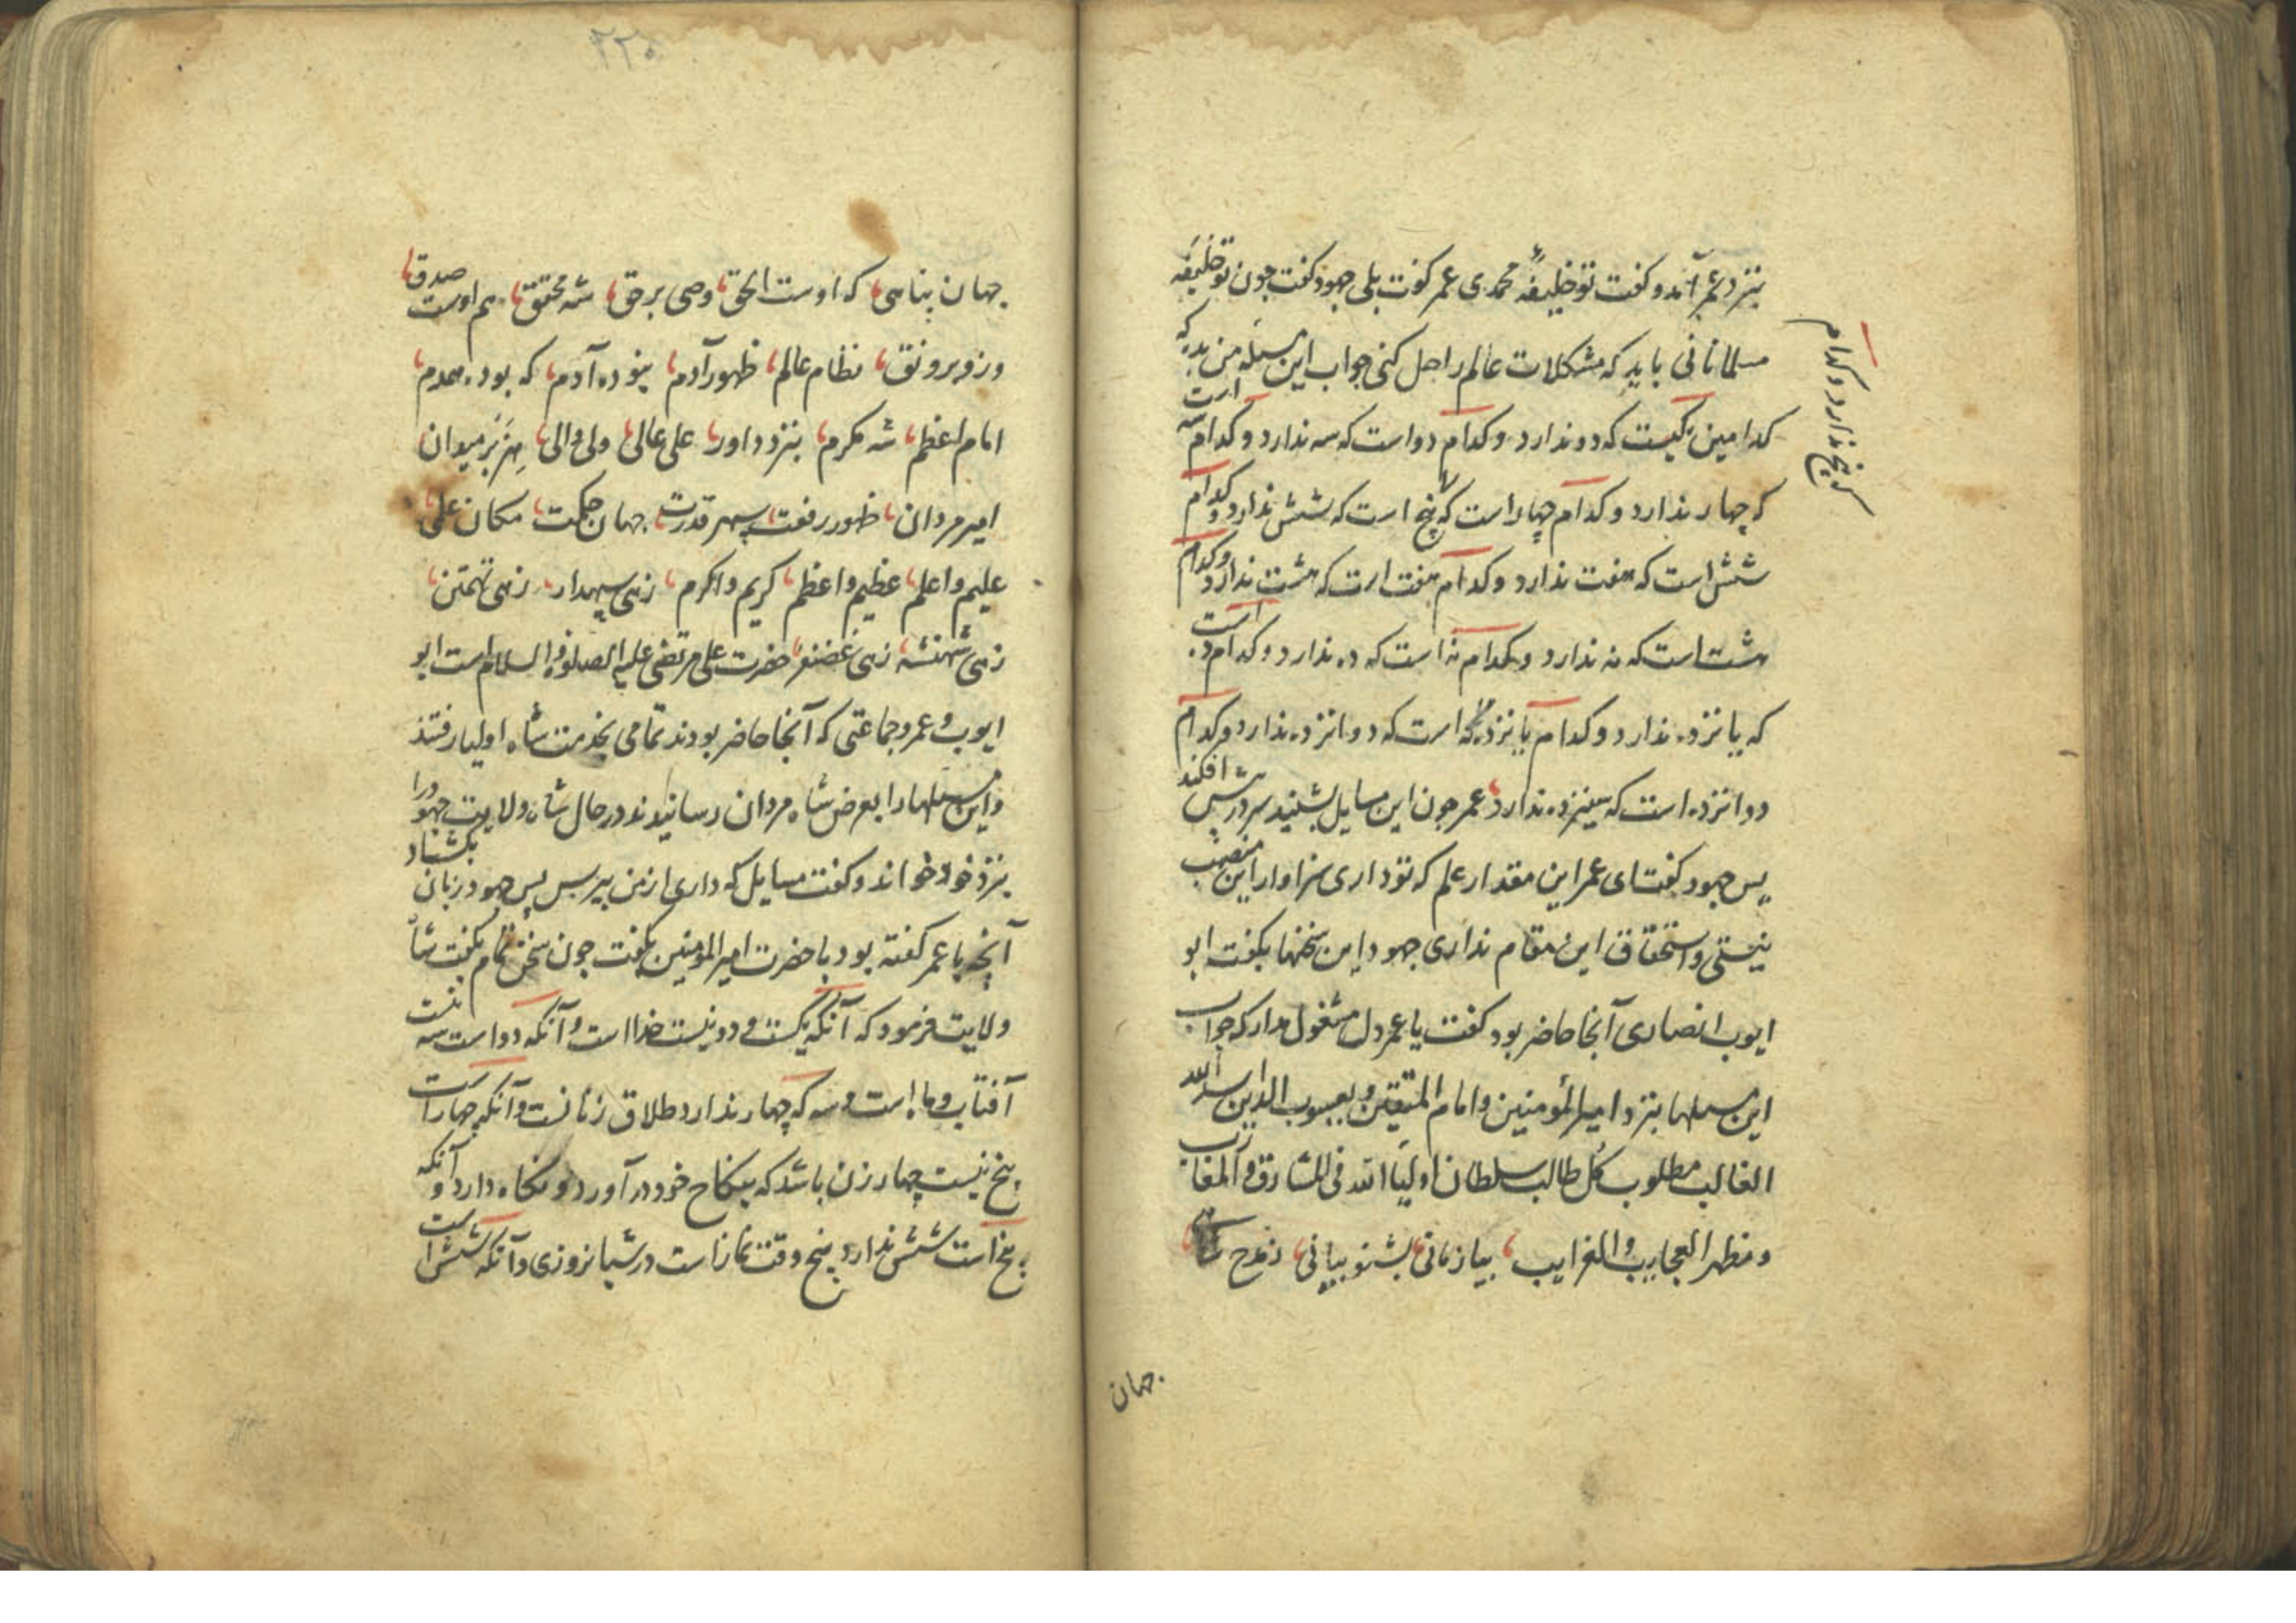 بنزد عمر آمد و گفت تو خلیفهٔ محمدی عمر گفت بلی جهود گفت چون تو خلیفه
مسلمانانی باید که مشکلات عالم را حل کنی جواب این مسئله من بده که
کدامین یکیست که دو ندارد و کدام دو است که سه ندارد و کدام سه است
که چهار ندارد و کدام چهار است که پنج است که شش ندارد و کدام
که پنج ندارد و کدام
شش است که هفت ندارد و کدام هفت است که هشت ندارد و کدام
هشت است که نه ندارد و کدام نه است که ده ندارد و کدام ده است
که یانزده ندارد و کدام یانزده است که دوانزده ندارد و کدام
دوانزده است که سینزده ندارد عمر چون این مسایل بشنید سر در پیش افکند
پس جهود گفت ای عمر این مقدار علم که تو داری سزاوار این منصب
نیستی و استحقاق این مقام نداری جهود این سخنها بگفت ابو
ایوب انصاری آنجا حاضر بود گفت یا عمر دل مشغول مدار که جواب
این مسئلها بنزد امیرالمؤمنین و امام المتقین و یعسوب الدین اسد الله
الغالب مطلوب کل طالب سلطان اولیاء الله فی المشارق و المغارب
و مظهر العجایب و الغرایب بیا زمانی بشنو بیانی ز مدح شاهی
جهان
۲۲۰
جهان پناهی که اوست الحق وصی برحق شه محقق هم اوست صدق
وزو برونق نظام عالم ظهور آدم نبوده آدم که بود همدم
امام اعظم شه مکرم بنزد داور علی عالی ولی والی هزبر میدان
امیر مردان ظهور رفعت سپهر قدرت جهان حکمت مکان علی
علیم و اعلم عظیم و اعظم کریم و اکرم زهی سپهدار زهی تهمتن
زهی شهنشه زهی غضنفر حضرت علی مرتضی علیه الصلوة و السلام است ابو
ایوب و عمر و جماعتی که آنجا حاضر بودند تمامی بخدمت شاه اولیا رفتند
و این مسئلها را بعرض شاه مردان رسانیدند در حال شاه ولایت جهود را
بنزد خود خواند و گفت مسایل که داری از من بپرس پس جهود زبان بگشاد
آنچه با عمر گفته بود با حضرت امیرالمومنین بگفت چون سخن تمام بگفت شاه
ولایت فرمود که آنکه یکست و دو نیست خدا است و آنکه دو است سه نیست
آفتاب و ماه است و سه که چهار ندارد طلاق زنانست و آنکه چهار است
پنج نیست چهار زن باشد که بنکاح خود در آورد و نکاه دارد و آنکه
پنج است شش ندارد پنج وقت نماز است در شبانروزی و آنکه شش است